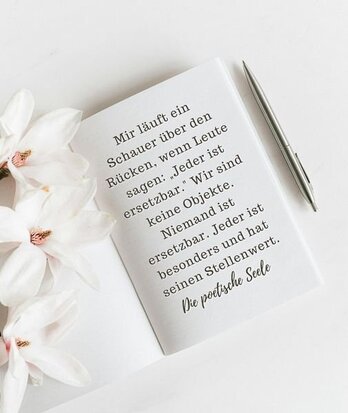 Mir läuft ein
Schauer über den
Rücken, wenn Leute
sagen: „Jeder ist
ersetzbar.“ Wir sind
keine Objekte.
Niemand ist
ersetzbar. Jeder ist
besonders und hat
seinen Stellenwert.
Die poetische Seele